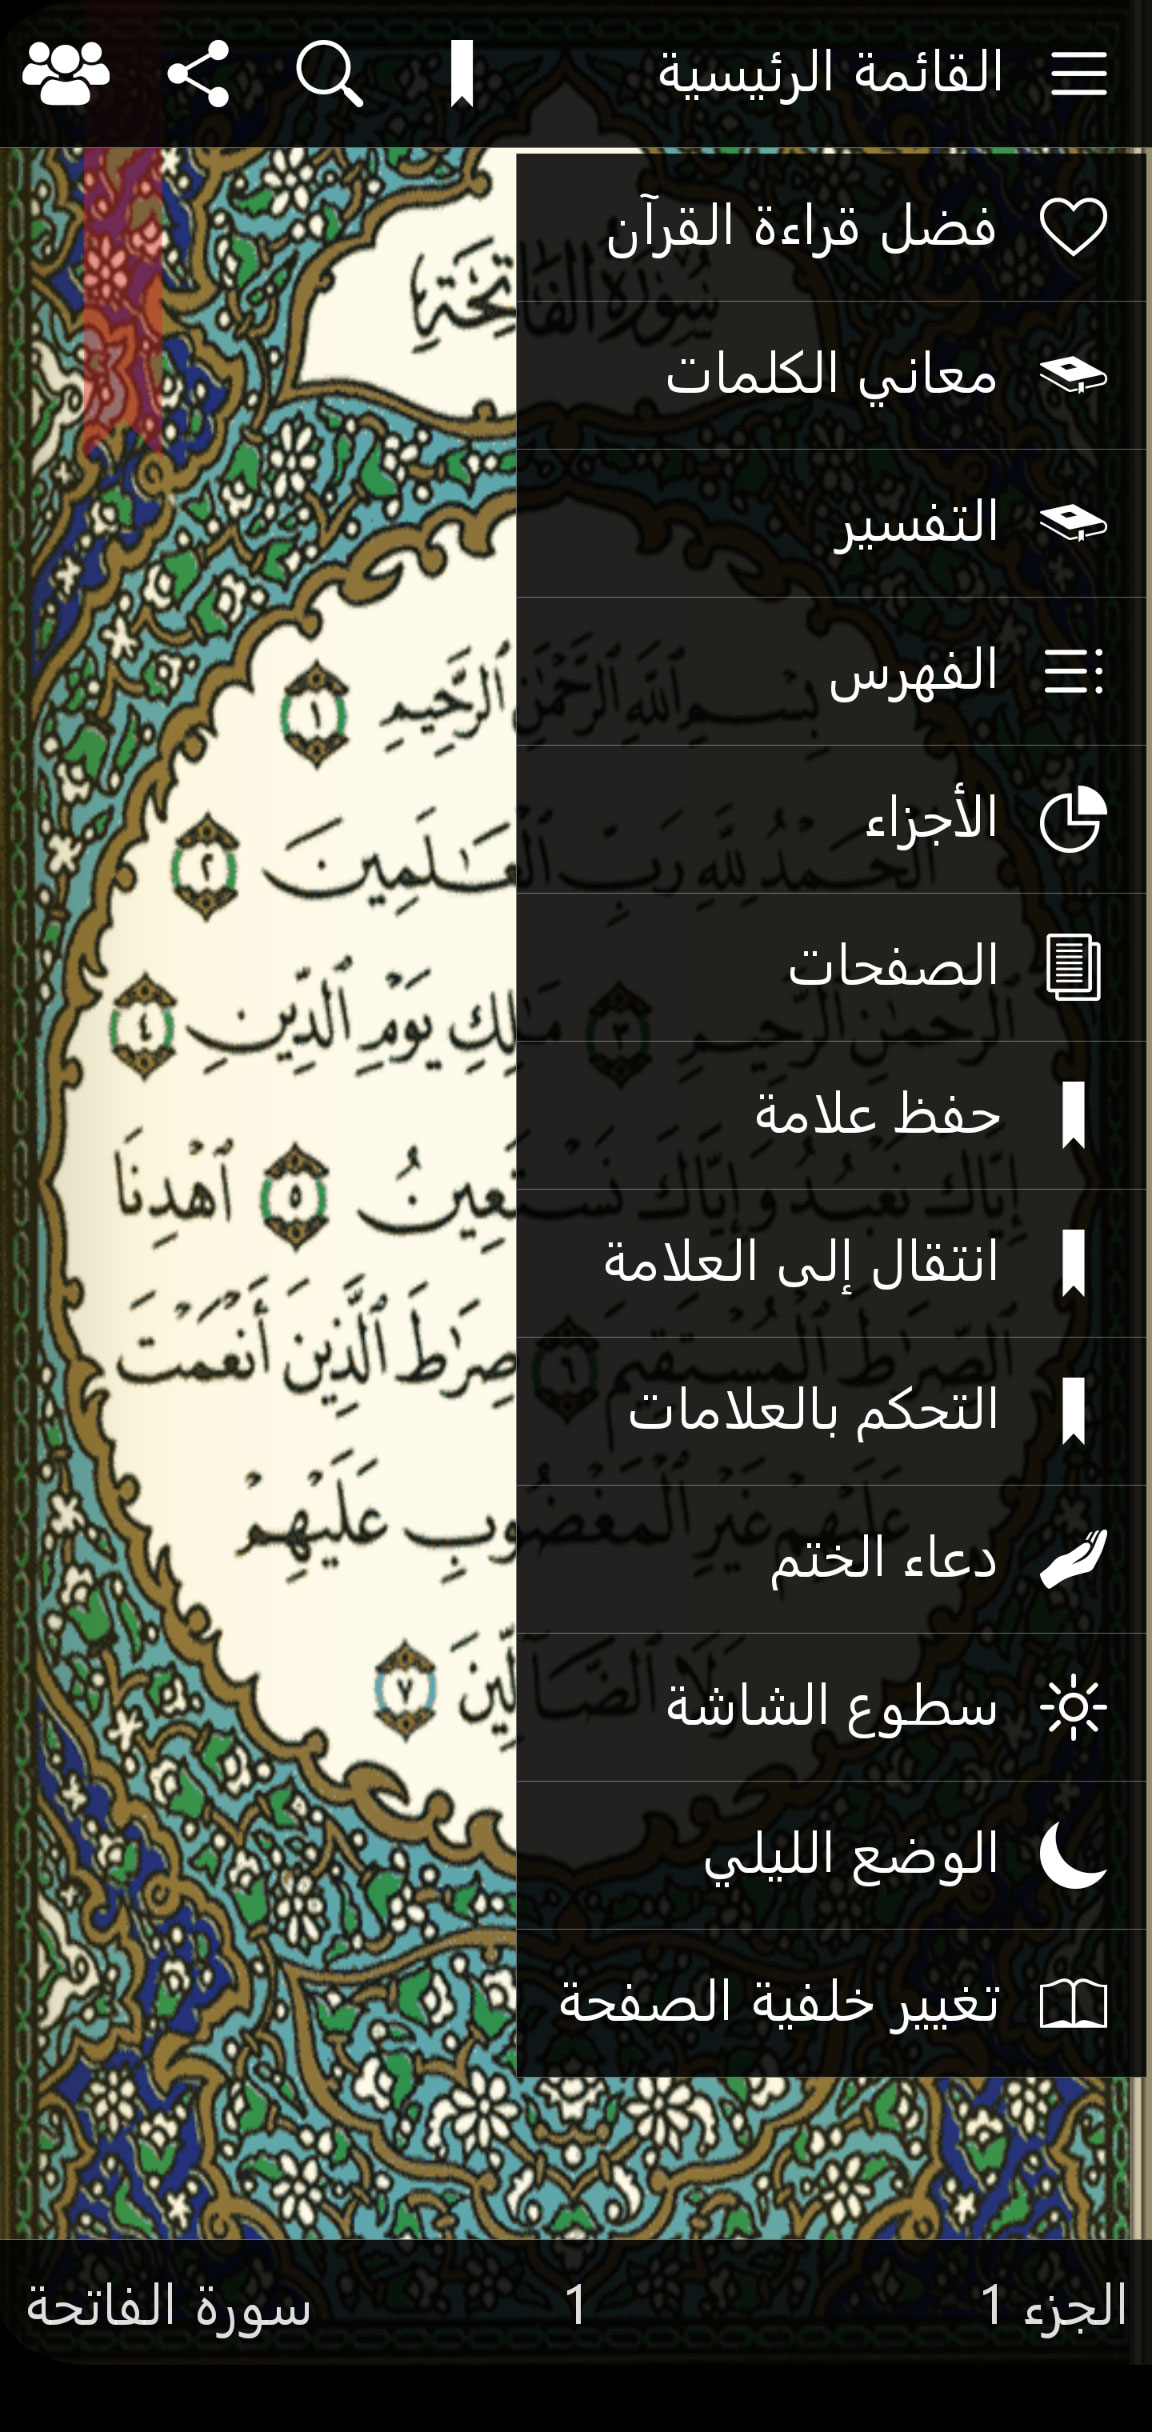 القائمة الرئيسية
فضل قراءة القرآن
معاني الكلمات
التفسير
الفهرس
الأجزاء
الصفحات
حفظ علامة
انتقال إلى العلامة
التحكم بالعلامات
دعاء الختم
سطوع الشاشة
الوضع الليلي
تغيير خلفية الصفحة
سُورَةُ الفَاتِحَةِ
بِسْمِ ٱللَّهِ ٱلرَّحْمَٰنِ ٱلرَّحِيمِ ١
ٱلْحَمْدُ لِلَّهِ رَبِّ ٱلْعَٰلَمِينَ ٢
ٱلرَّحْمَٰنِ ٱلرَّحِيمِ ٣ مَٰلِكِ يَوْمِ ٱلدِّينِ ٤
إِيَّاكَ نَعْبُدُ وَإِيَّاكَ نَسْتَعِينُ ٥ ٱهْدِنَا
ٱلصِّرَٰطَ ٱلْمُسْتَقِيمَ ٦ صِرَٰطَ ٱلَّذِينَ أَنْعَمْتَ
عَلَيْهِمْ غَيْرِ ٱلْمَغْضُوبِ عَلَيْهِمْ
وَلَا ٱلضَّآلِّينَ ٧
الجزء 1
1
سورة الفاتحة